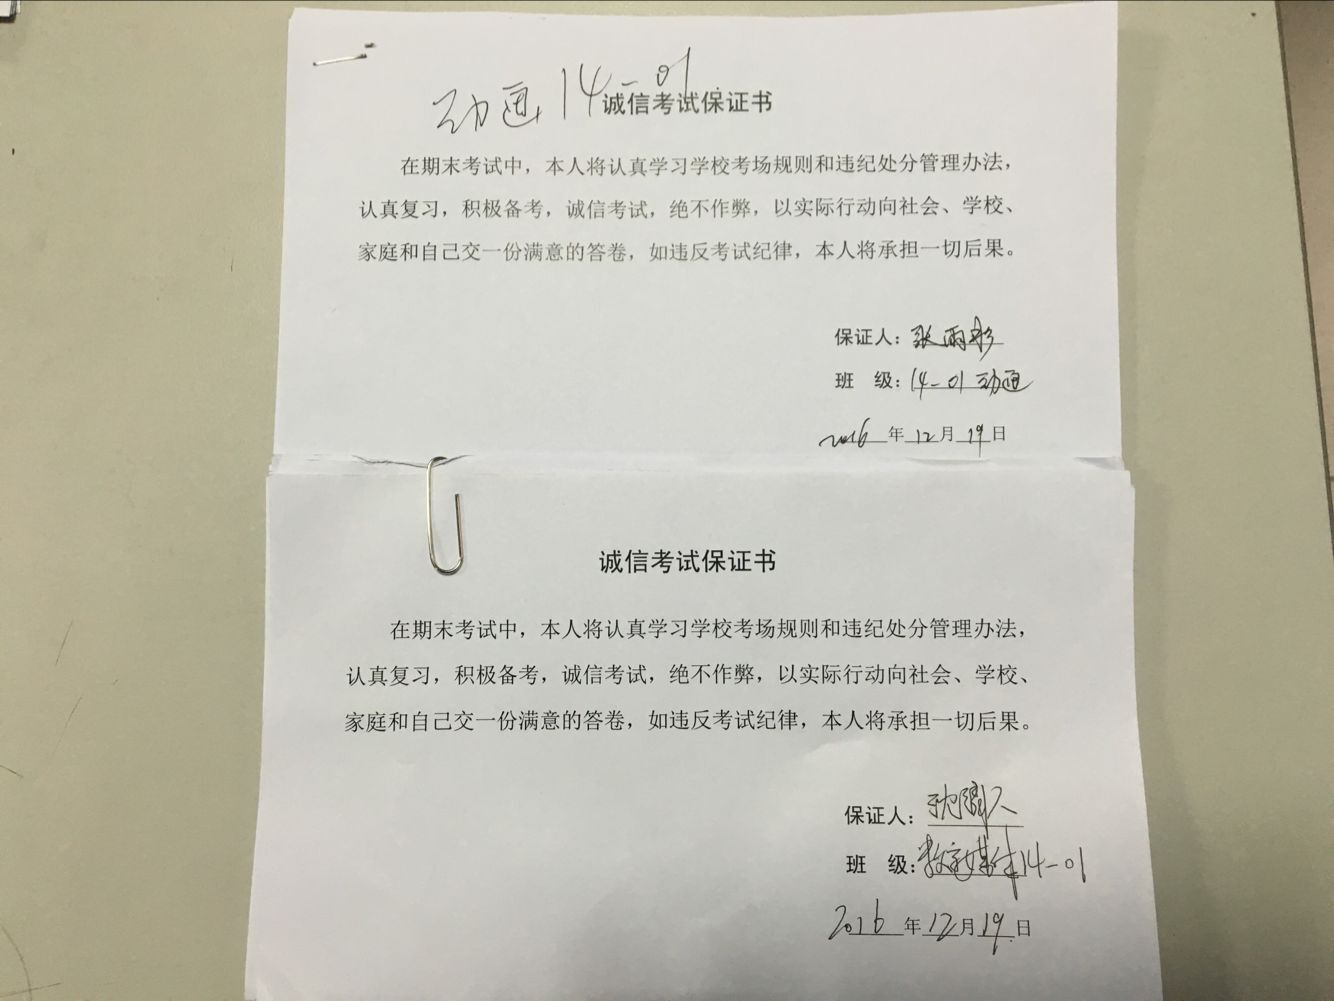 动画 14-01
诚信考试保证书
在期末考试中，本人将认真学习学校考场规则和违纪处分管理办法，
认真复习，积极备考，诚信考试，绝不作弊，以实际行动向社会、学校、
家庭和自己交一份满意的答卷，如违反考试纪律，本人将承担一切后果。
保证人：张雨杉
班 级：14-01 动画
2016年12月19日
诚信考试保证书
在期末考试中，本人将认真学习学校考场规则和违纪处分管理办法，
认真复习，积极备考，诚信考试，绝不作弊，以实际行动向社会、学校、
家庭和自己交一份满意的答卷，如违反考试纪律，本人将承担一切后果。
保证人：
班 级：数字媒体14-01
2016年12月19日